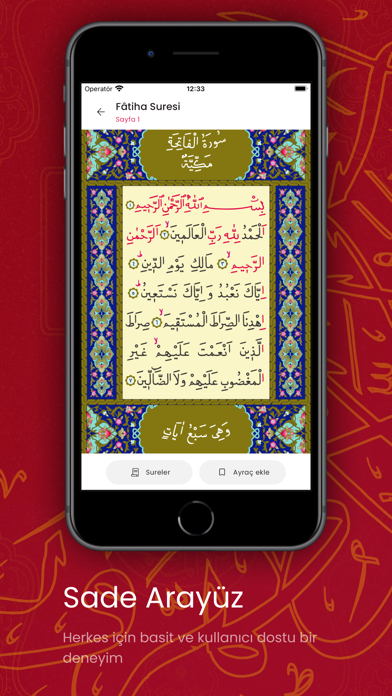 Operatör 12:33
Fâtiha Suresi
Sayfa 1
سُورَةُ الْفَاتِحَةِ
مَكِّيَّةٌ
بِسْــمِ اللّٰهِ الرَّحْمٰنِ الرَّحٖيمِ ۝١
اَلْحَمْدُ لِلّٰهِ رَبِّ الْعَالَمٖينَۙ ۝٢ اَلرَّحْمٰنِ
الرَّحٖيمِۙ ۝٣ مَالِكِ يَوْمِ الدّٖينِۜ ۝٤
اِيَّاكَ نَعْبُدُ وَ اِيَّاكَ نَسْتَعٖينُۜ ۝٥
اِهْدِنَا الصِّرَاطَ الْمُسْتَقٖيمَۙ ۝٦ صِرَاطَ
الَّذٖينَ اَنْعَمْتَ عَلَيْهِمْۙ غَيْرِ
الْمَغْضُوبِ عَلَيْهِمْ وَلَا الضَّٓالّٖينَ ۝٧
وَهِيَ سَبْعُ اٰيَاتٍ
Sureler Ayraç ekle
Sade Arayüz
Herkes için basit ve kullanıcı dostu bir
deneyim